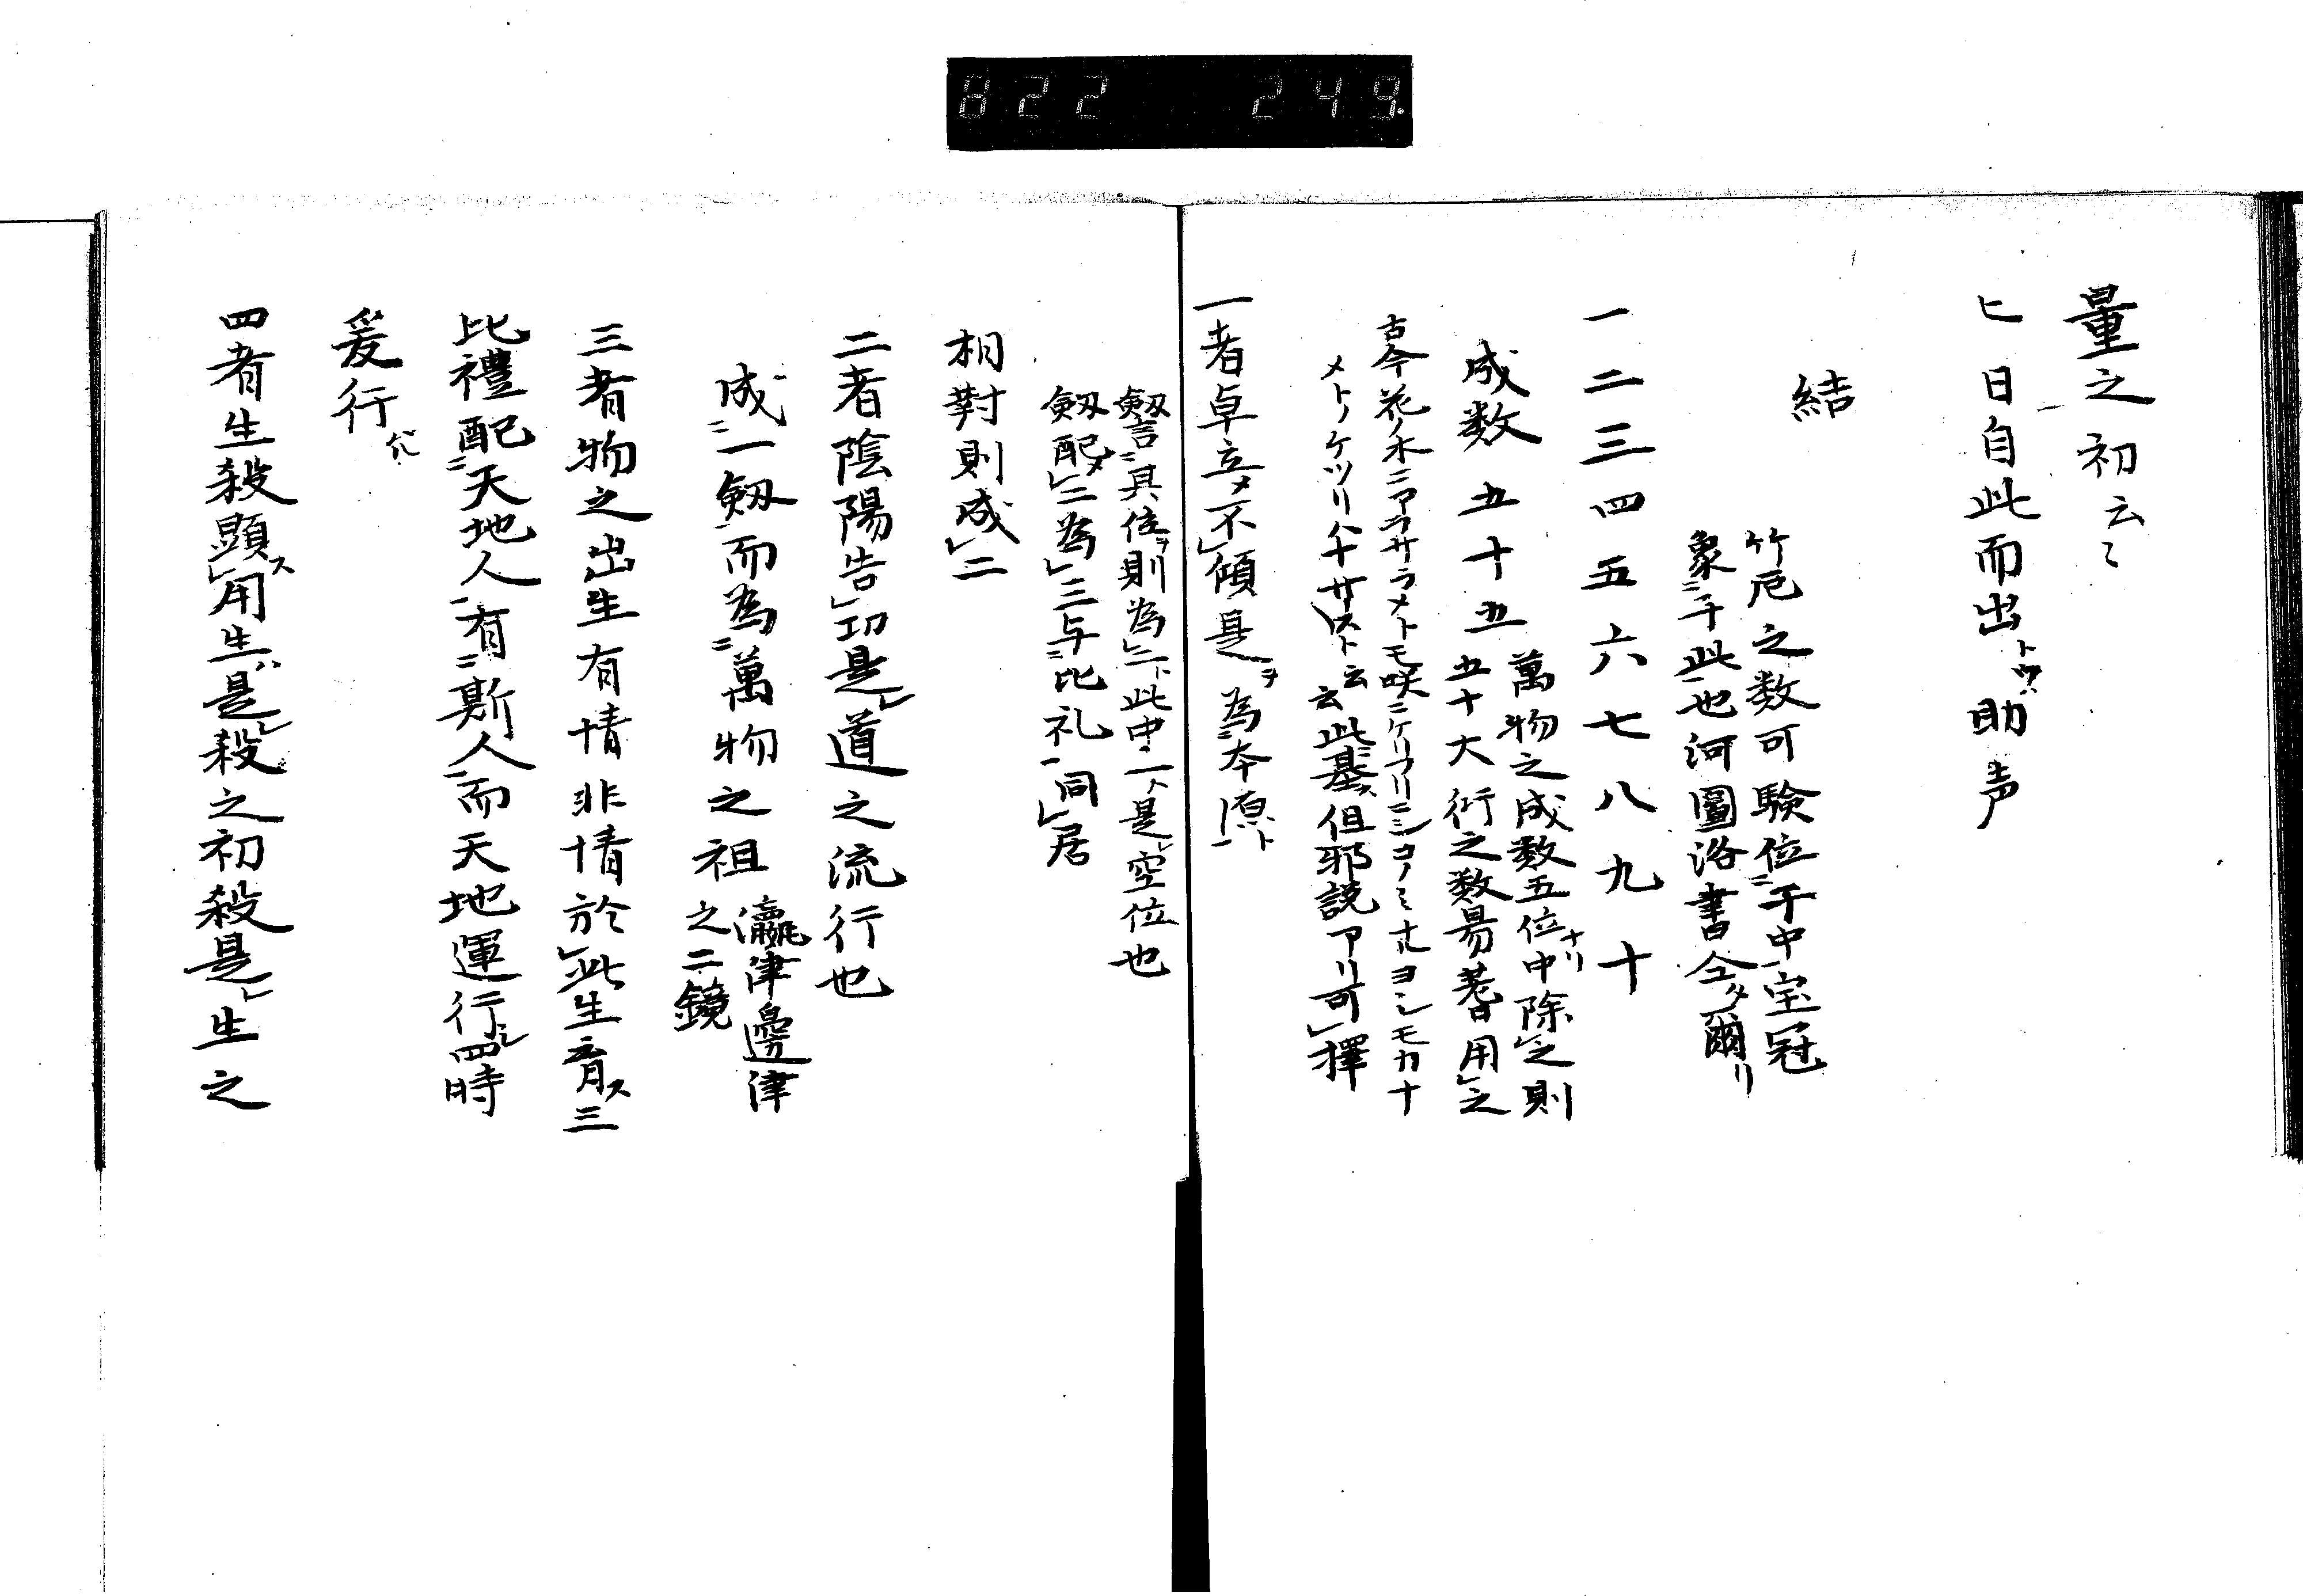 822 249.
量之初云〻
匕日自此而出トウハ助声
結
竹卮之数可験位ニ于中一宝冠
象ニ于此一也河圖洛書全タ爾リ
一二三四五六七八九十
萬物之成数五位ナリ中除レ之則
成数五十五 五十大衍之数昜蓍用レ之
古今花ノ木ニアラサラメトモ咲ニケリフリニシコノミナルヨシモカナ
メトノケツリハナサストハ云云此墓ス但邪説アリ可レ擇
一者卓立メ不レ傾是ヲ為ニ本源一ト
劔言ニ具位ヲ則為レ二ト此中一ハ是レ空位也
劔配メレ二為レ三与ニ比礼一同レ居
相對則成レ二
二者陰陽告レ功是レ道之流行也
成ニ一劔一而為ニ萬物之祖 瀛津邊津
之二鏡
三者物之出生有情非情於レ此生育ス三
比禮配ニ天地人一有ニ斯人一而天地運行シ四時
爰行ハル
四者生殺顕レ用ス生ハ是レ殺之初殺是レ生之